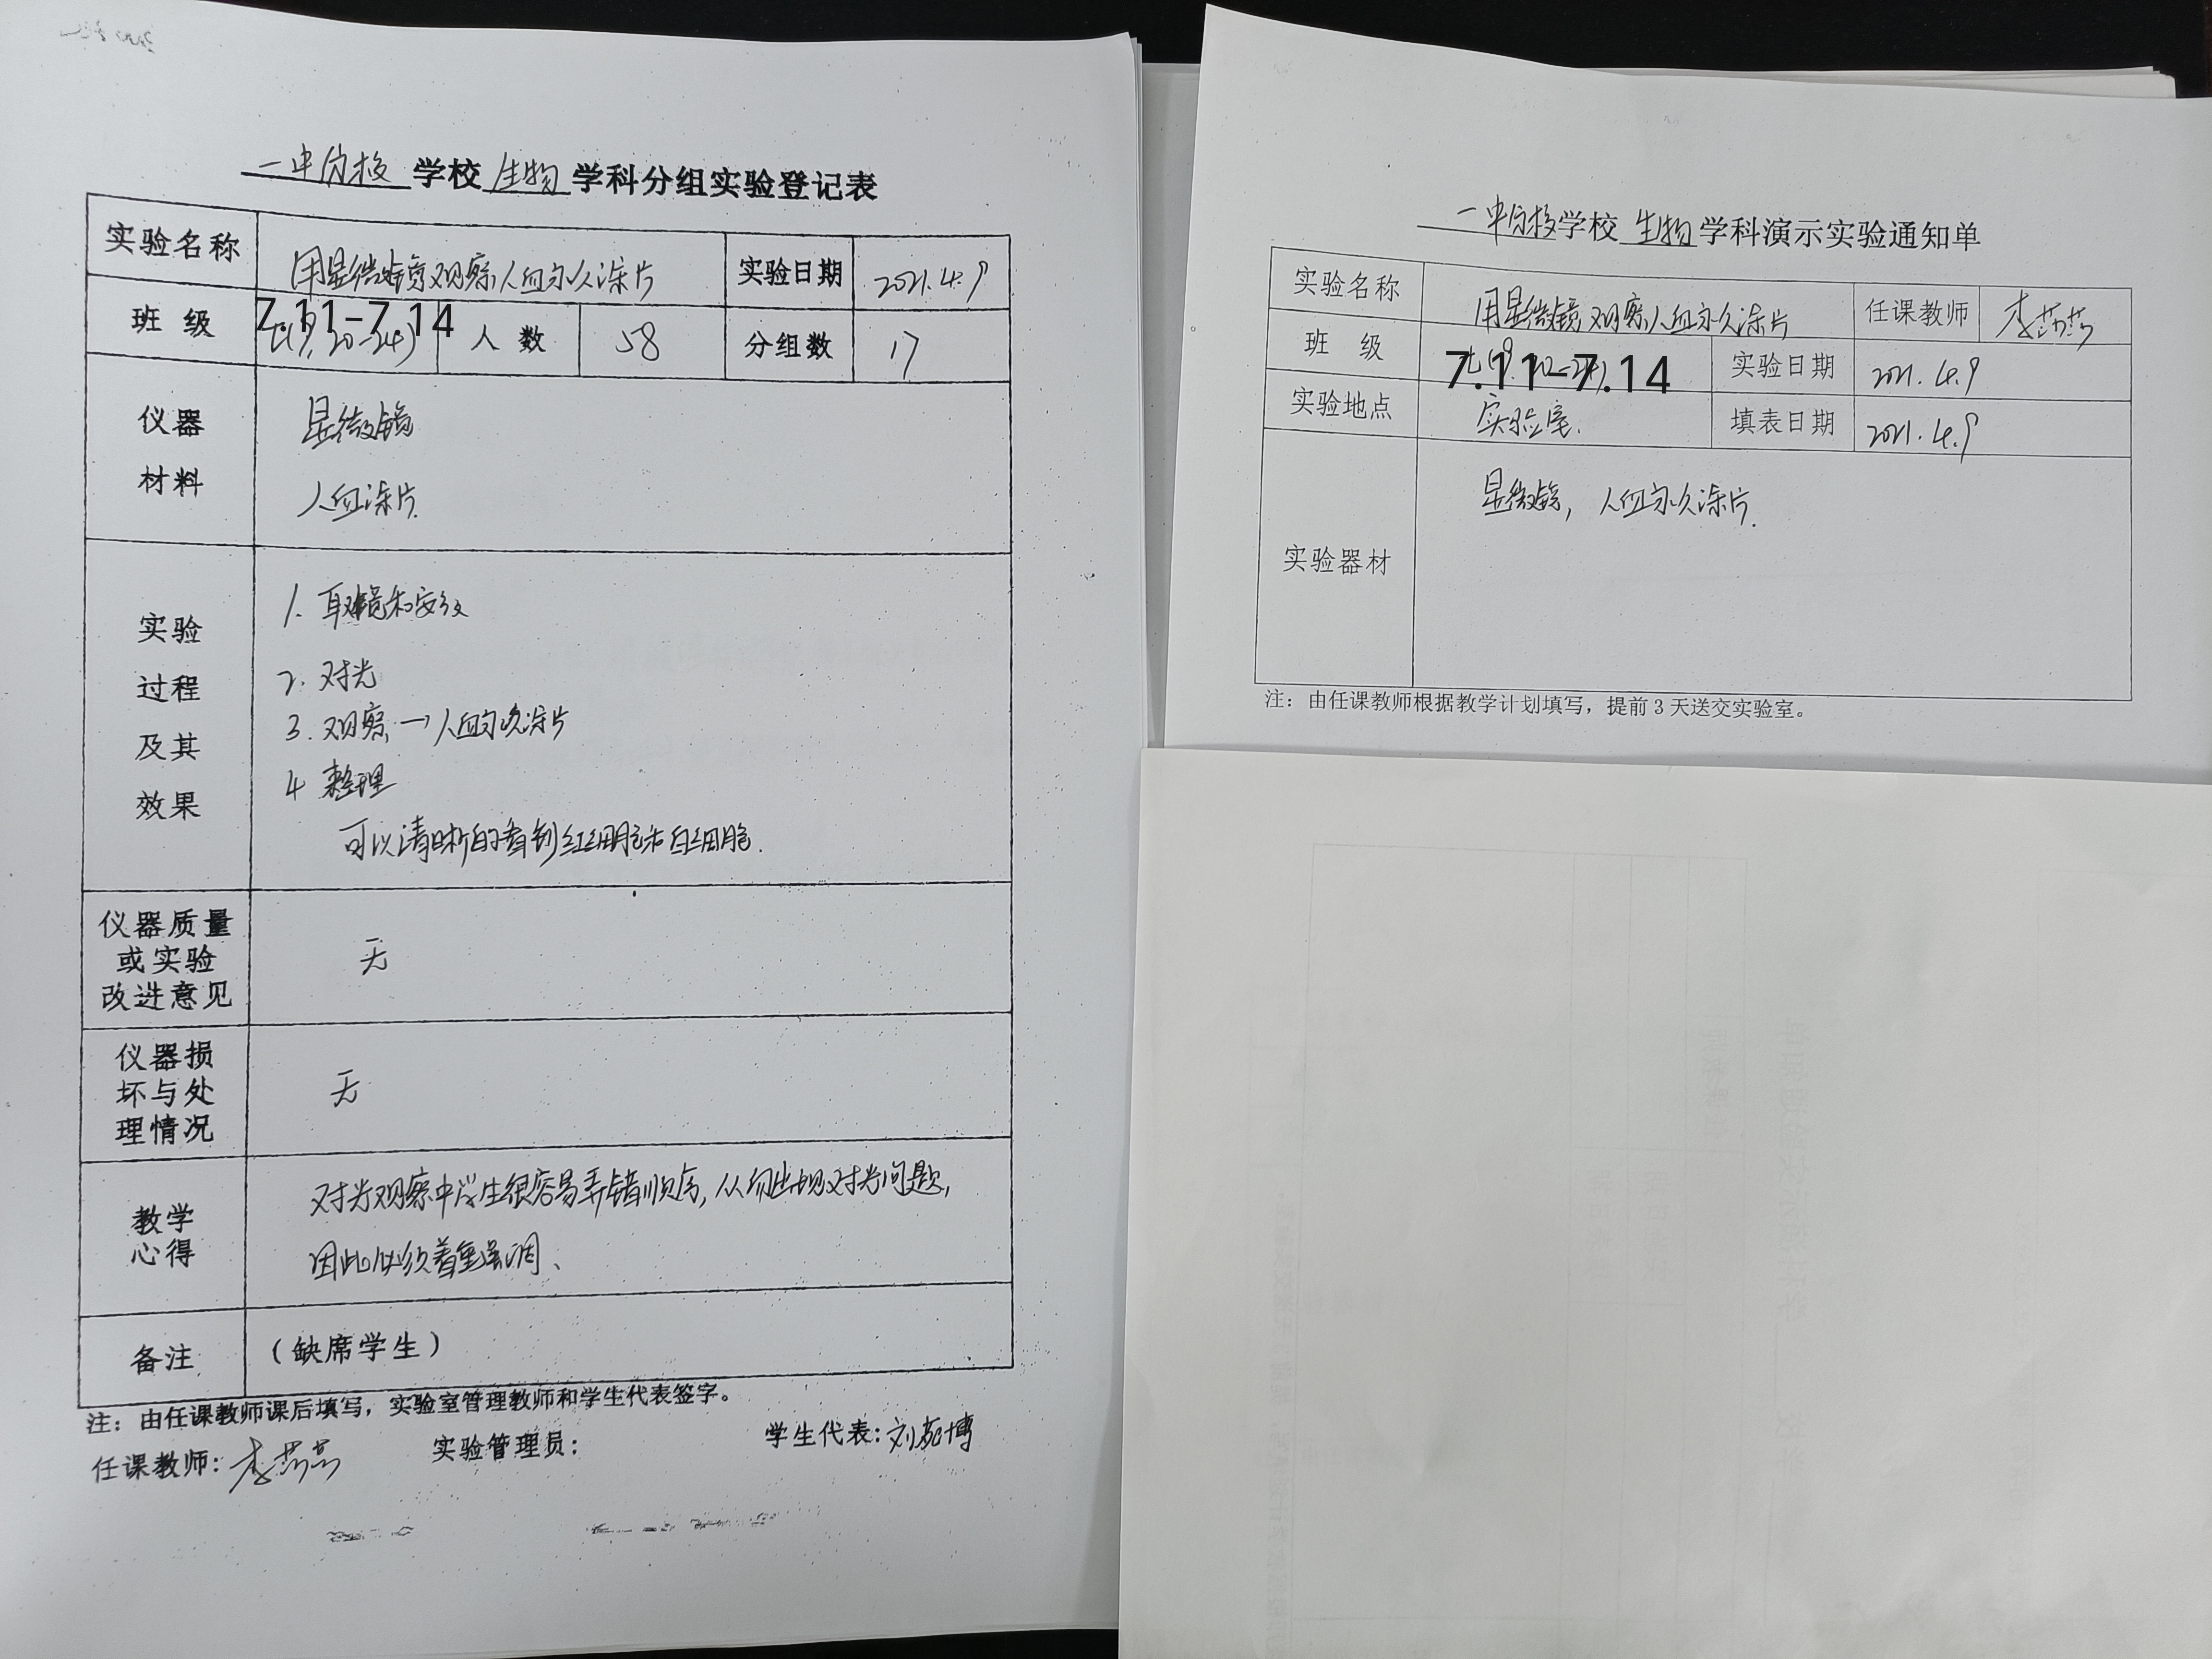 一中分校 学校 生物 学科分组实验登记表
实验名称 用显微镜观察人血永久涂片 实验日期 2021.4.9
班级 7.11-7.14 人数 58 分组数 17
仪器
材料
显微镜
人血涂片
实验
过程
及其
效果
1. 取镜和安放
2. 对光
3. 观察→人血永久涂片
4 整理
可以清晰的看到红细胞和白细胞.
仪器质量
或实验
改进意见
无
仪器损
坏与处
理情况
无
教学
心得
对光观察中学生很容易弄错顺序,从而出现对光问题,
因此必须着重强调、
备注 (缺席学生)
注：由任课教师课后填写，实验室管理教师和学生代表签字。
任课教师: 李 实验管理员: 学生代表: 刘苑博
一中分校学校 生物 学科演示实验通知单
实验名称 用显微镜观察人血永久涂片 任课教师 李
班级 7.11-7.14 实验日期 2021.4.9
实验地点 实验室. 填表日期 2021.4.9
实验器材 显微镜, 人血永久涂片.
注：由任课教师根据教学计划填写，提前3天送交实验室。